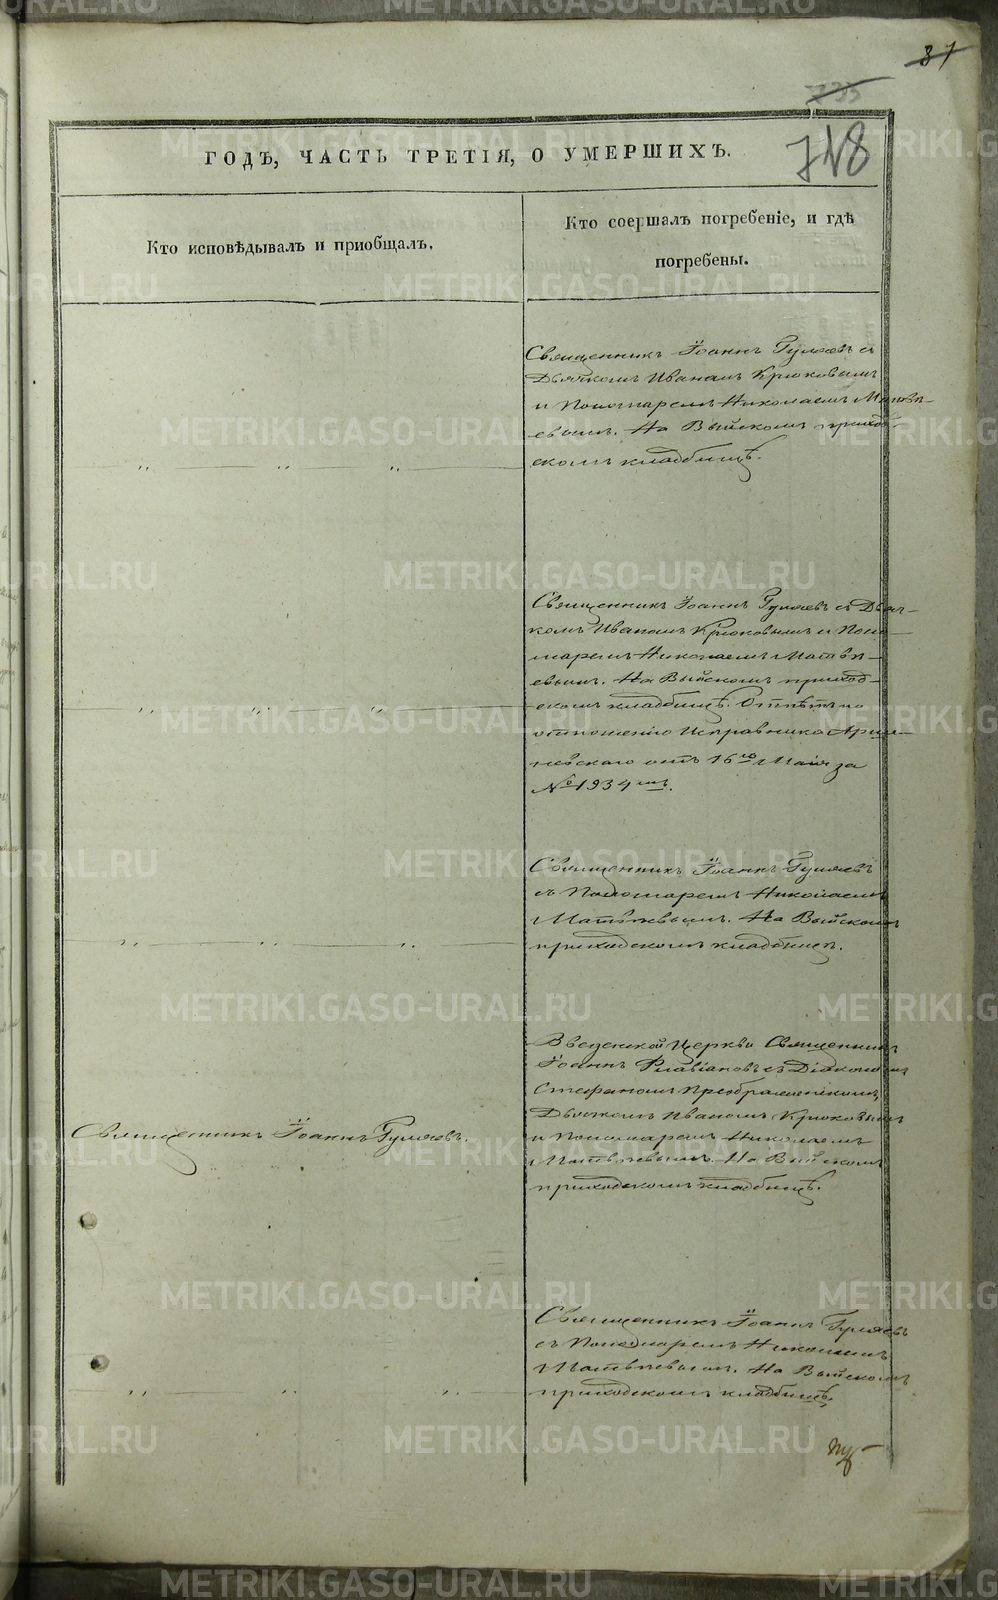 87
735
748
ГОДѢ, ЧАСТЬ ТРЕТІЯ, О УМЕРШИХЪ.
Кто исповѣдывалъ и приобщалъ.
Кто соершалъ погребеніе, и гдѣ
погребены.
Священникъ Іоаннъ Гуляевъ съ
Дьячкомъ Иваномъ Крюковымъ
и Пономаремъ Николаемъ Матвѣ-
евымъ. На Выйскомъ приход-
скомъ кладбищѣ.
" " "
Священникъ Іоаннъ Гуляевъ съ Дьяч-
комъ Иваномъ Крюковымъ и Поно-
маремъ Николаемъ Матвѣ-
евымъ. На Выйскомъ приход-
скомъ кладбищѣ. Отпѣтъ по
отношенію Исправника
отъ 16го Маія за
№ 1934мъ.
" " "
Священникъ Іоаннъ Гуляевъ
съ Пономаремъ Николаемъ
Матвѣевымъ. На Выйскомъ
приходскомъ кладбищѣ.
" " "
Введенской Церкви Священникъ
Іоаннъ Флавіановъ съ Діакономъ
Стефаномъ Преображенскимъ,
Дьячкомъ Иваномъ Крюковымъ
и Пономаремъ Николаемъ
Матвѣевымъ. На Выйскомъ
приходскомъ кладбищѣ.
Священникъ Іоаннъ Гуляевъ.
Священникъ Іоаннъ Гуляевъ
съ Пономаремъ Николаемъ
Матвѣевымъ. На Выйскомъ
приходскомъ кладбищѣ.
" " "
METRIKI.GASO-URAL.RU